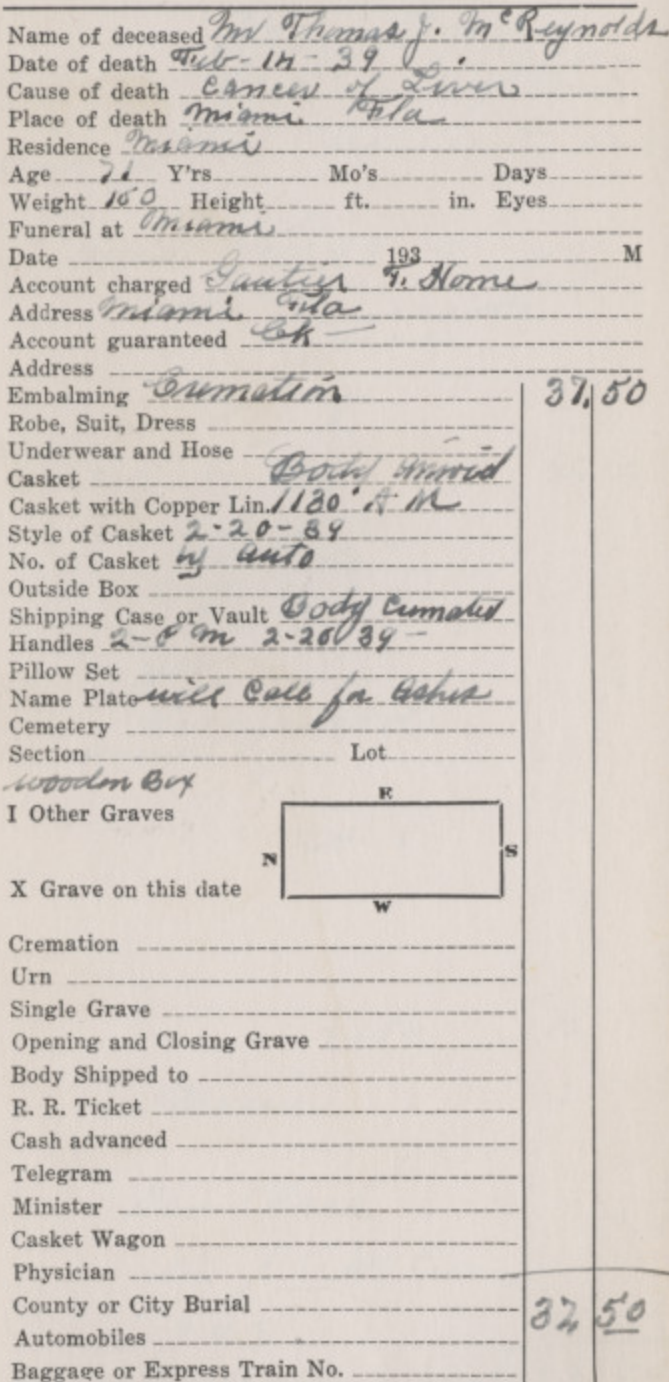 Name of deceased Mr Thomas J. McReynolds
Date of death Feb - 1 - 39
Cause of death Cancer of Liver
Place of death Miami Fla
Residence Miami
Age 71 Y'rs Mo's Days
Weight 150 Height ft. in. Eyes
Funeral at Miami
Date 193 M
Account charged Gautier F. Home
Address Miami Fla
Account guaranteed Ck
Address
Embalming Cremation 37.50
Robe, Suit, Dress
Underwear and Hose
Casket Body arrived
Casket with Copper Lin. 1130 A M
Style of Casket 2-20-39
No. of Casket by auto
Outside Box
Shipping Case or Vault Body Cremated
Handles 2-P m 2-20 39 -
Pillow Set
Name Plate will Call for Ashes
Cemetery
Section Lot
wooden Box
E
I Other Graves
N S
X Grave on this date
W
Cremation
Urn
Single Grave
Opening and Closing Grave
Body Shipped to
R. R. Ticket
Cash advanced
Telegram
Minister
Casket Wagon
Physician
County or City Burial 37 50
Automobiles
Baggage or Express Train No.